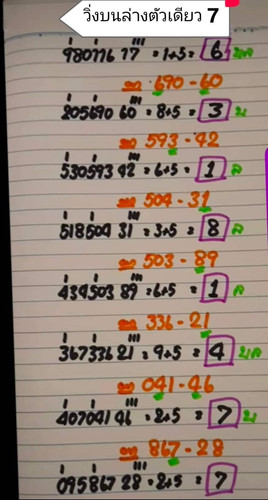 วิ่งบนล่างตัวเดียว 7
980776 17 = 1+5 = 6 บล
690-60
205690 60 = 8+5 = 3 บ
593-42
530593 42 = 6+5 = 1 ล
504-31
518504 31 = 3+5 = 8 ล
503-89
439503 89 = 6+5 = 1 ล
336-21
367336 21 = 9+5 = 4 บล
041-46
407041 46 = 2+5 = 7 บ
867-28
095867 28 = 2+5 = 7